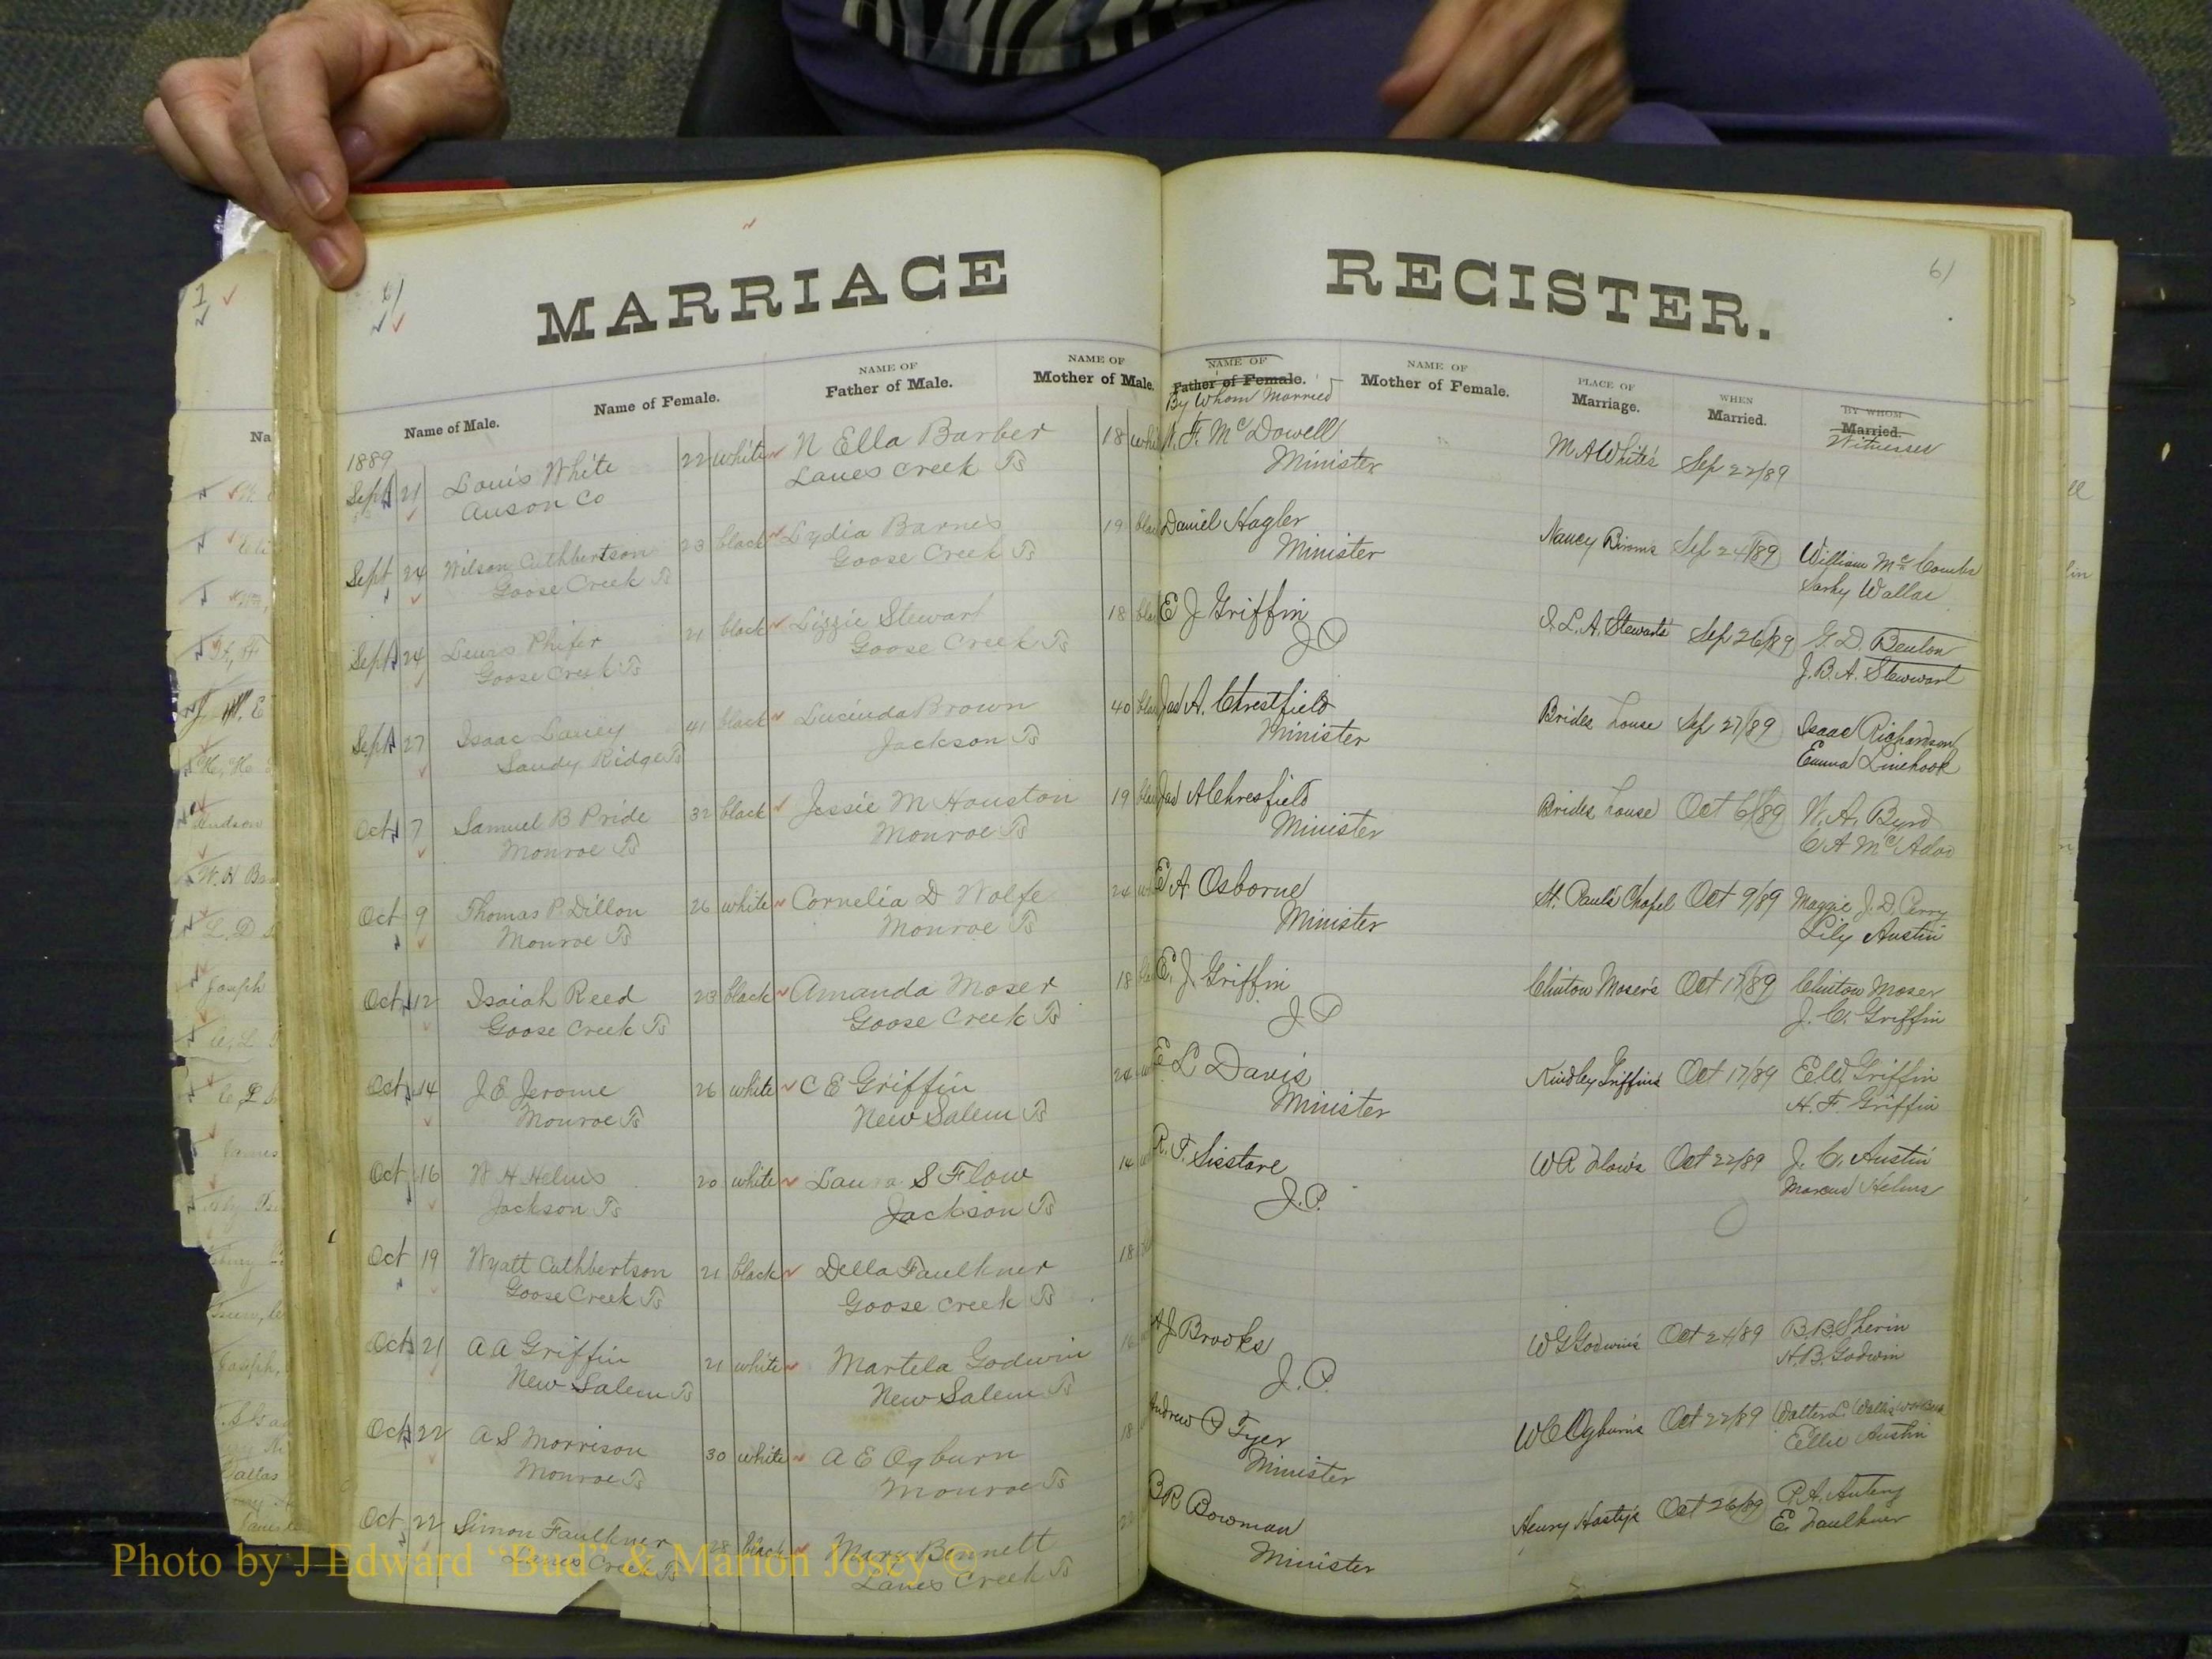 MARRIAGE REGISTER.
61 61
Name of Male. Name of Female. NAME OF Father of Male. NAME OF Mother of Male. NAME OF Father of Female. NAME OF Mother of Female. PLACE OF Marriage. WHEN Married. BY WHOM Married.
By Whom Married Witnesses
1889
Sept 21 Louis White 22 white N Ella Barber 18 F. McDowell M A White's Sep 22/89
Anson Co Lanes Creek Ts Minister
Sept 24 Wilson Cuthbertson 23 black Lydia Barnes 19 Daniel Hagler Nancy Sep 24/89 William McCombs
Goose Creek Ts Goose Creek Ts Minister Wallac
Sept 24 Lewis Phifer 21 black Lizzie Stewart 18 E J Griffin L. A. Stewarts Sep 26/89 G. D. Benton
Goose Creek Ts Goose Creek Ts J P J. B. A. Stewart
Sept 27 Isaac Laney 41 black Lucinda Brown 40 Jas A. Chrestfield Brides house Sep 27/89 Isaac Richardson
Sandy Ridge Ts Jackson Ts Minister Emma
Oct 7 Samuel B Pride 32 black Jessie M Houston 19 Jas A Chresfield Brides house Oct 6/89 W. A. Byrd
Monroe Ts Monroe Ts Minister C A McAdoo
Oct 9 Thomas P. Dillon 26 white Cornelia D Wolfe 24 E A Osborne St. Paul's Chapel Oct 9/89 Maggie J. D. Perry
Monroe Ts Monroe Ts Minister Lily Austin
Oct 12 Isaiah Reed 23 black Amanda Moser 18 E. J. Griffin Clinton Moser's Oct 17/89 Clinton Moser
Goose Creek Ts Goose Creek Ts J P J. C. Griffin
Oct 14 J. E Jerome 26 white C E Griffin 24 E L Davis Kindley Griffin's Oct 17/89 E. W. Griffin
Monroe Ts New Salem Ts Minister H. F. Griffin
Oct 16 W H Helms 20 white Laura S Flow R. T. Sisstare W R Flow's Oct 22/89 J. C. Austin
Jackson Ts Jackson Ts J. P. Marcus Helms
Oct 19 Wyatt Cuthbertson 21 black Della Faulkner 18
Goose Creek Ts Goose Creek Ts
Oct 21 A A Griffin 21 white Martela Godwin A J Brooks W G Godwin's Oct 24/89 B. B. Sherin
New Salem Ts New Salem Ts J. P. H. B. Godwin
Oct 22 A S Morrison 30 white A E Ogburn 18 Andrew P Tyer W C Ogburn's Oct 22/89 Walter L.
Monroe Ts Monroe Ts Minister Ellie Austin
Oct 22 Simon Faulkner 28 black Mary Bennett B R Bowman Henry Hasty's Oct 26/89 P. A.
Lanes Creek Ts Lanes Creek Ts Minister E. Faulkner
Photo by J Edward “Bud” & Marion Josey ©